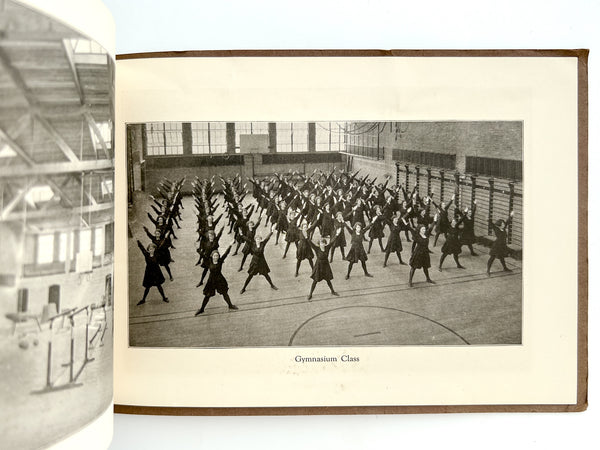 Gymnasium Class